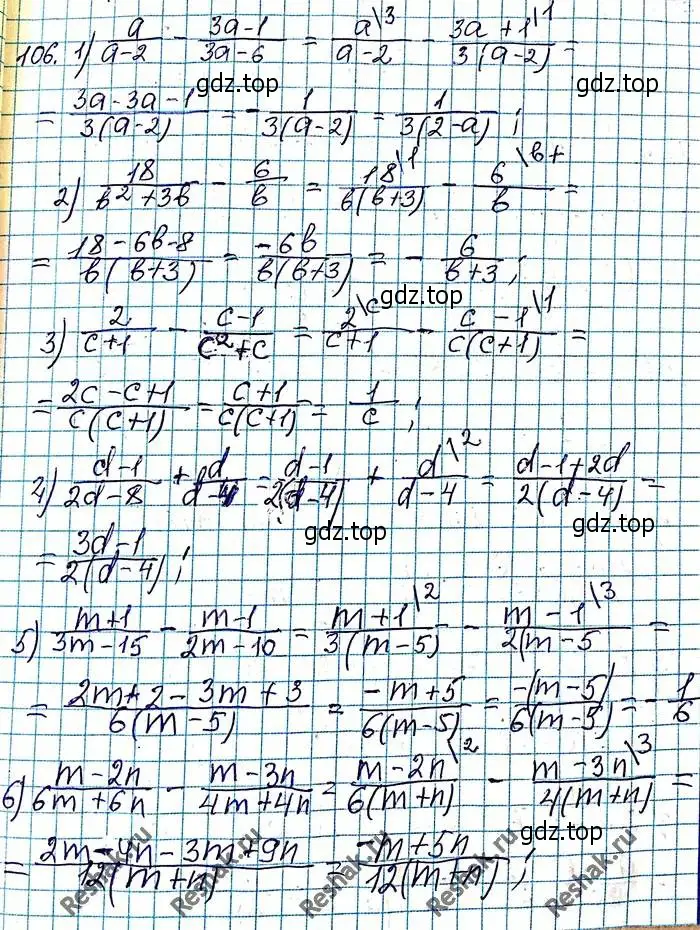 106. 1) a/(a-2) - (3a-1)/(3a-6) = a\3/(a-2) - (3a+1\1)/(3(a-2)) =
gdz.top gdz.top
= (3a-3a-1)/(3(a-2)) = -1/(3(a-2)) = 1/(3(2-a));
2) 18/(в²+3в) - 6/в = 18\1/(в(в+3)) - 6\в+/в =
= (18-6в-8)/(в(в+3)) = -6в/(в(в+3)) = -6/(в+3);
gdz.top
3) 2/(c+1) - (c-1)/(c²+c) = 2\c/(c+1) - (c-1\1)/(c(c+1)) =
= (2c-c+1)/(c(c+1)) = (c+1)/(c(c+1)) = 1/c;
4) (d-1)/(2d-8) + d/(d-4) = (d-1)/(2(d-4)) + d\2/(d-4) = (d-1+2d)/(2(d-4)) =
gdz.top
= (3d-1)/(2(d-4));
5) (m+1)/(3m-15) - (m-1)/(2m-10) = (m+1\2)/(3(m-5)) - (m-1\3)/(2(m-5 =
= (2m+2-3m+3)/(6(m-5)) = (-m+5)/(6(m-5)) = -(m-5)/(6(m-5)) = -1/6
6) (m-2n)/(6m+6n) - (m-3n)/(4m+4n) = (m-2n\2)/(6(m+n)) - (m-3n\3)/(4(m+n)) =
gdz.top
= (2m-4n-3m+9n)/(12(m+n)) = (-m+5n)/(12(m+n));
Reshak.ru Reshak.ru Reshak.ru Reshak.ru